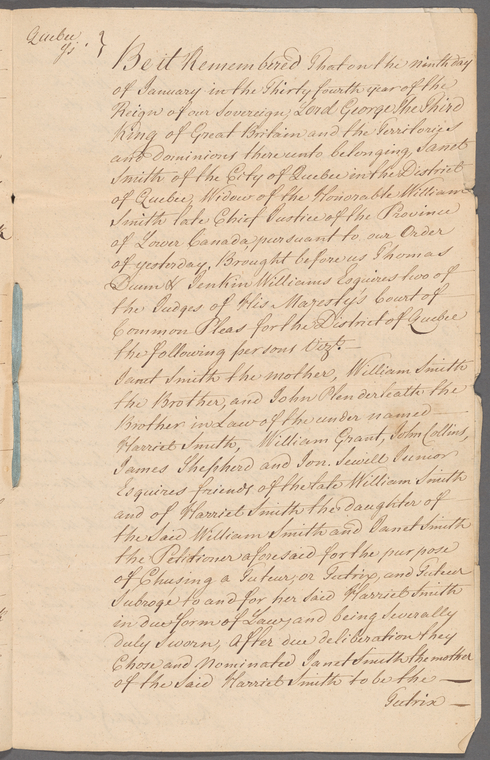 Quebec
ss. }
Be it Remembered That on the ninth day
of January in the Thirty fourth year of the
Reign of our Sovereign, Lord George the Third
King of Great Britain and the Territorys
and Dominions there unto belonging Janet
Smith of the City of Quebec in the District
of Quebec, Widow of the Honorable William
Smith late Chief Justice of the Province
of Lower Canada pursuant to our Order
of yesterday, Brought before us Thomas
Dunn & Jenkin Williams Esquires two of
the Judges of His Majesty's Court of
Common Pleas for the District of Quebec
the following persons Vizt.
Janet Smith the mother, William Smith
the Brother, and John Plenderleath the
Brother in Law of the under named
Harriet Smith, William Grant, John Collins,
James Shepherd and Jon. Sewell Junior
Esquires friends of the late William Smith
and of Harriet Smith the daughter of
the Said William Smith and Janet Smith
the Petitioner aforesaid for the purpose
of Chusing a Tuteur, or Tutrix, and Tuteur
Subrogé to and for her said Harriet Smith
in due form of Law, and being severally
duly sworn, After due deliberation they
Chose and Nominated Janet Smith the mother
of the Said Harriet Smith to be the —
Tutrix —